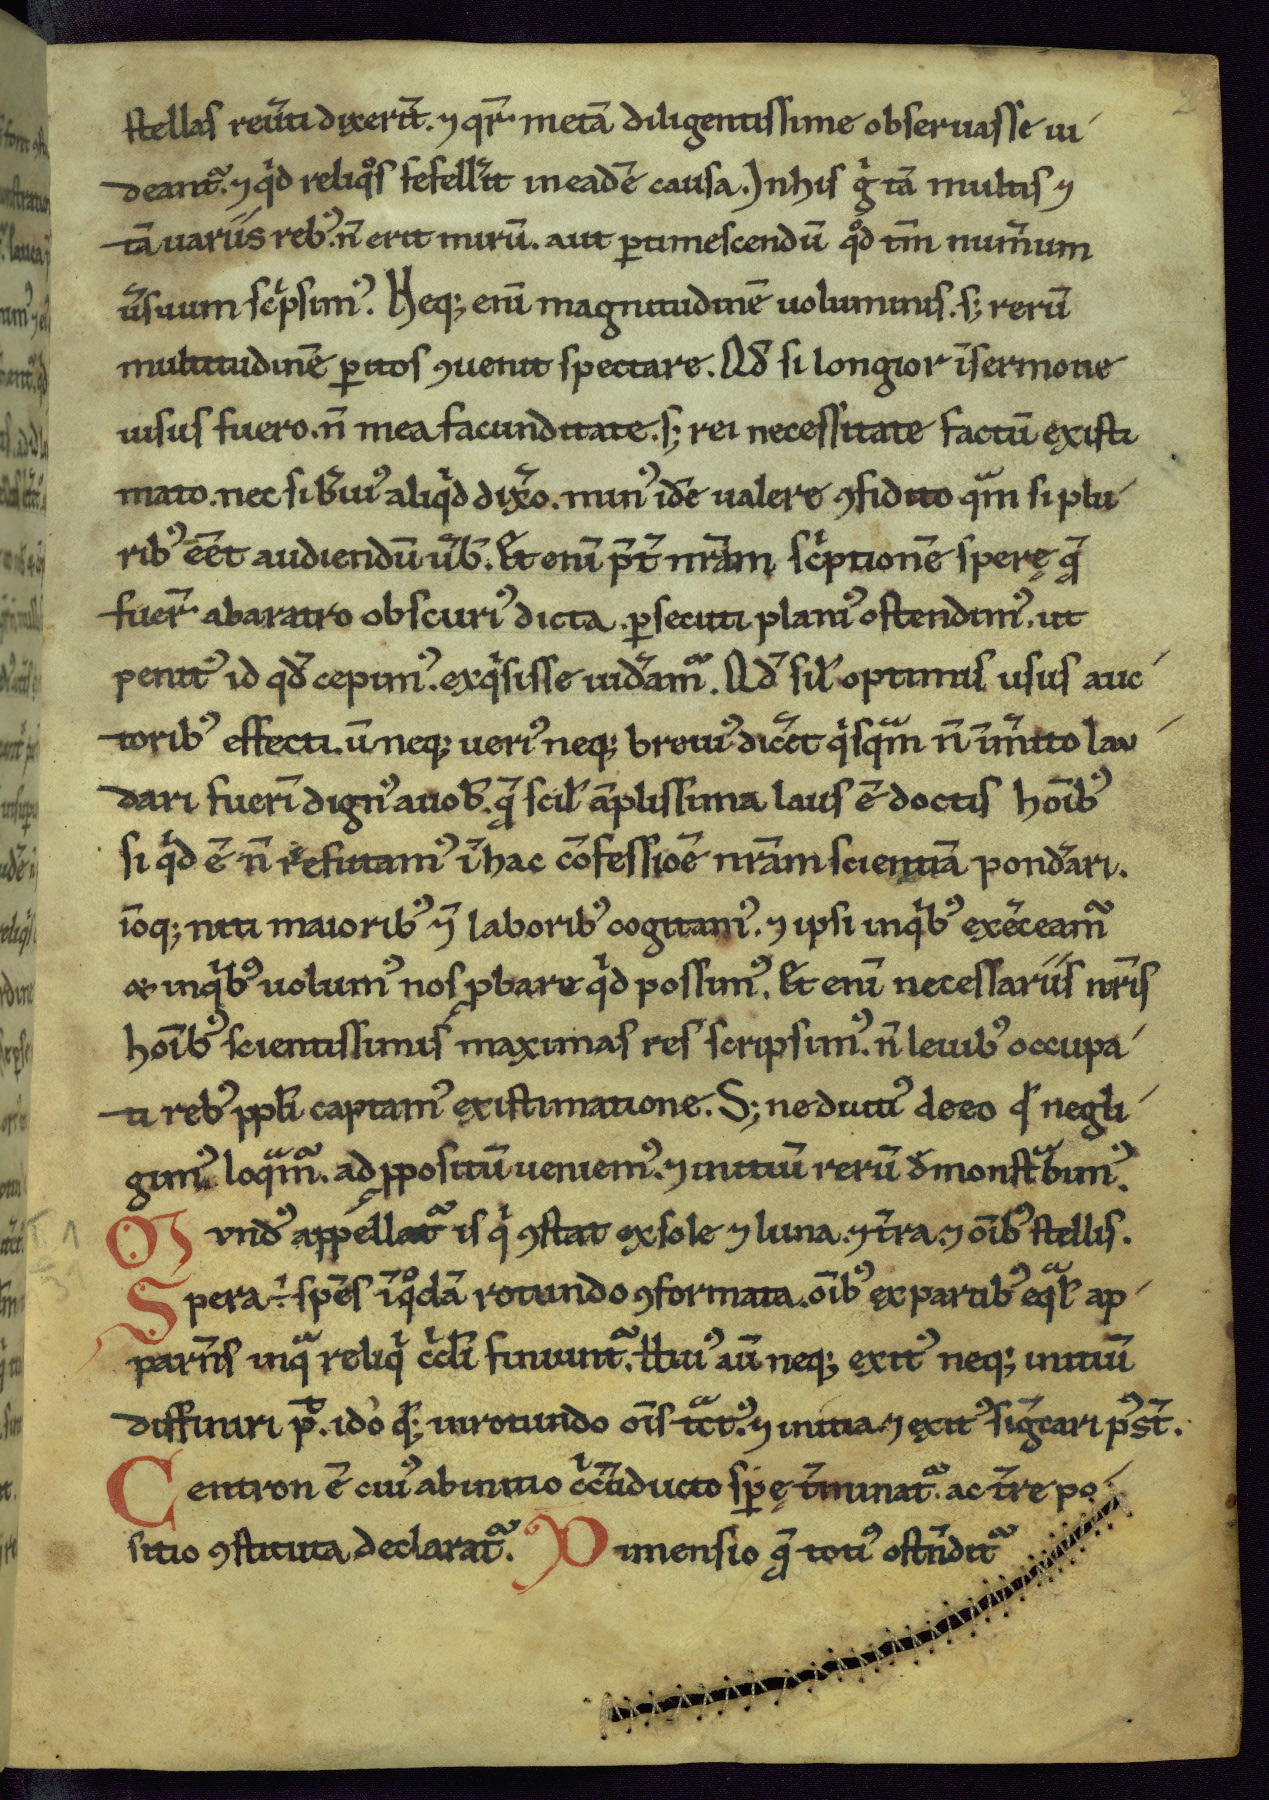 stellas reuͣti dixerīt. ⁊ qr̄ metā diligentissime obseruasse ui
deant᷑. ⁊ qͥd reliqͦs fefellerīt in eadē causa. In his gͥ tā multis ⁊
tā uariis rebꝰ. n̄ erit mirū. aut ꝑtimescendū qͦd tm̄ num̄um
ūsuum scͥpsimꝰ. Neq; enī magnitudinē uoluminis. s; rerū
multitudinē ꝑitos ꝯuenit spectare. Qd̄ si longior ī sermone
uisus fuero. n̄ mea facunditate. s; rei necessitate factū existi
mato. nec si br̄uiꝰ aliqͥd dix̄o. minꝰ idē ualere ꝯfidito qͣm si plu
ribꝰ eēt audiendū ūb̄. Et enī p̄t̄ nr̄am scͥptionē sperę q̄
fuer̄ ab aratro obscuriꝰ dicta. ꝑsecuti planiꝰ ostendimꝰ. ut
penitꝰ id qd̄ cepimꝰ. exqͥsisse uid̄am᷑. Qd̄ sil̄ optimis usus auc
toribꝰ effecti. ū neq; ueriꝰ neq; breuiꝰ dic̄et qͥsqͣm n̄ īm̄ito lau
dari fuerī dignꝰ a uob̄. q̄ scil̄ āplissima laus ē doctis hoībꝰ
si qͥd ē n̄ refutamꝰ ī hac cōfessioē nr̄am scientiā pond̄ari.
īoq; niti maioribꝰ ⁊̄ laboribꝰ cogitamꝰ. ⁊ ipsi inqͥbꝰ ex̄ceam᷑
& inqͥbꝰ uolumꝰ nos ꝓbare qͥd possimꝰ. Et enī necessariis nr̄is
hoībꝰ scientissimis maximas res scripsimꝰ. n̄ leuibꝰ occupa
ti rebꝰ ppl̄i captamꝰ existimatione. S; ne diutiꝰ de eo qͥ negli
gimꝰ loqͣm᷑. ad ꝓpositū ueniemꝰ. ⁊ initiū rerū d̄monstͣbimꝰ.
Mundꝰ appellat᷑ is qͥ ꝯstat ex sole ⁊ luna. ⁊ t̄ra. ⁊ oībꝰ stellis.
Spera ÷ spēs īqͦdā rotundo ꝯformata. oībꝰ ex partibꝰ eqͣl̄ ap
parn̄s inqͣ reliqͥ cͥcl̄i finiunt᷑. Huiꝰ aū neq; exitꝰ neq; initiū
diffiniri p̄t. idō q; in rotundo oīs tͣctꝰ. ⁊ initia. ⁊ exitꝰ siḡcari pꝰst̄.
Centron ē cuiꝰ ab initio cͥcūducto sp̄ę t̄minat᷑. ac t̄re po
sitio ꝯstituta declarat᷑. Dimensio q̄ totiꝰ ostn̄dit᷑